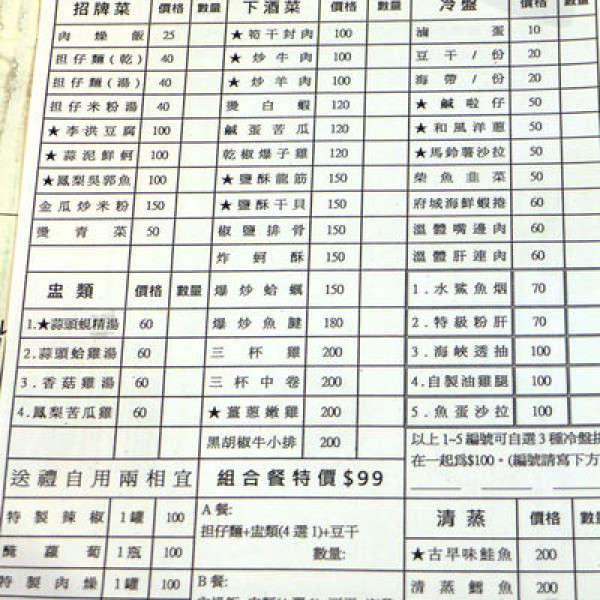 招牌菜 價格 數量
肉燥飯 25
担仔麵(乾) 40
担仔麵(湯) 40
担仔米粉湯 40
★李洪豆腐 100
★蒜泥鮮蚵 100
★鳳梨吳郭魚 100
金瓜炒米粉 150
燙青菜 50
盅類 價格 數量
1.★蒜頭蜆精湯 60
2.蒜頭蛤雞湯 60
3.香菇雞湯 60
4.鳳梨苦瓜雞 60
下酒菜 價格 數量
★筍干封肉 100
★炒牛肉 100
★炒羊肉 100
燙白蝦 120
鹹蛋苦瓜 120
乾椒爆子雞 120
★鹽酥龍筋 150
★鹽酥干貝 150
椒鹽排骨 150
炸蚵酥 150
爆炒蛤蠣 150
爆炒魚腱 180
三杯雞 200
三杯中卷 200
★薑蔥嫩雞 200
黑胡椒牛小排 200
冷盤 價格 數量
滷蛋 10
豆干/份 20
海帶/份 20
★鹹啦仔 50
★和風洋蔥 50
★馬鈴薯沙拉 50
柴魚韭菜 50
府城海鮮蝦捲 60
溫體嘴邊肉 60
溫體肝連肉 60
1.水鯊魚烟 70
2.特級粉肝 70
3.海峽透抽 100
4.自製油雞腿 100
5.魚蛋沙拉 100
以上1~5編號可自選3種冷盤
在一起為$100。(編號請寫下方
送禮自用兩相宜
特製辣椒 1罐 100
醃蘿蔔 1瓶 100
特製肉燥 1罐 100
組合餐特價$99
A餐:
担仔麵+盅類(4選1)+豆干
數量:
B餐:
清蒸 價格 數量
★古早味鮭魚 200
清蒸鱈魚 200